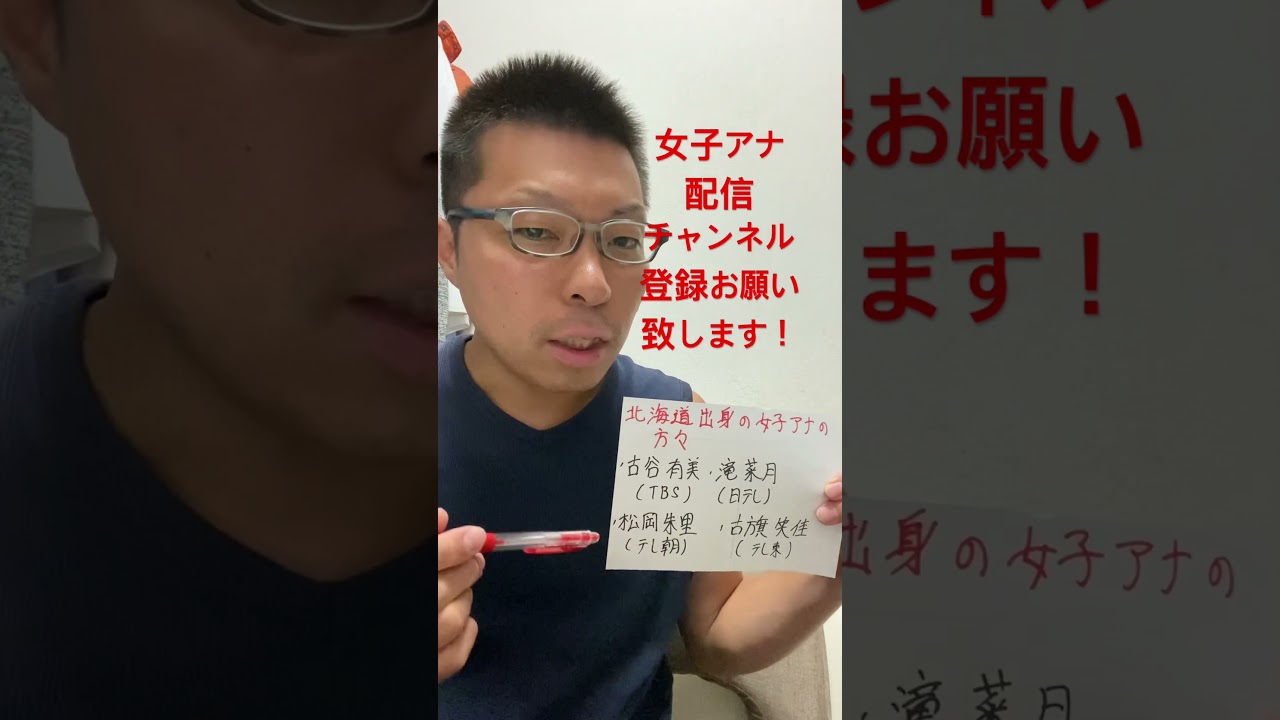 女子アナ
配信
チャンネル
登録お願い
致します！
北海道出身の女子アナの
方々
・古谷有美 ・滝菜月
(TBS) (日テレ)
・松岡朱里 ・古旗笑佳
(テレ朝) (テレ東)
ンネル
録お願い
ます！
出身の女子アナの
滝菜月